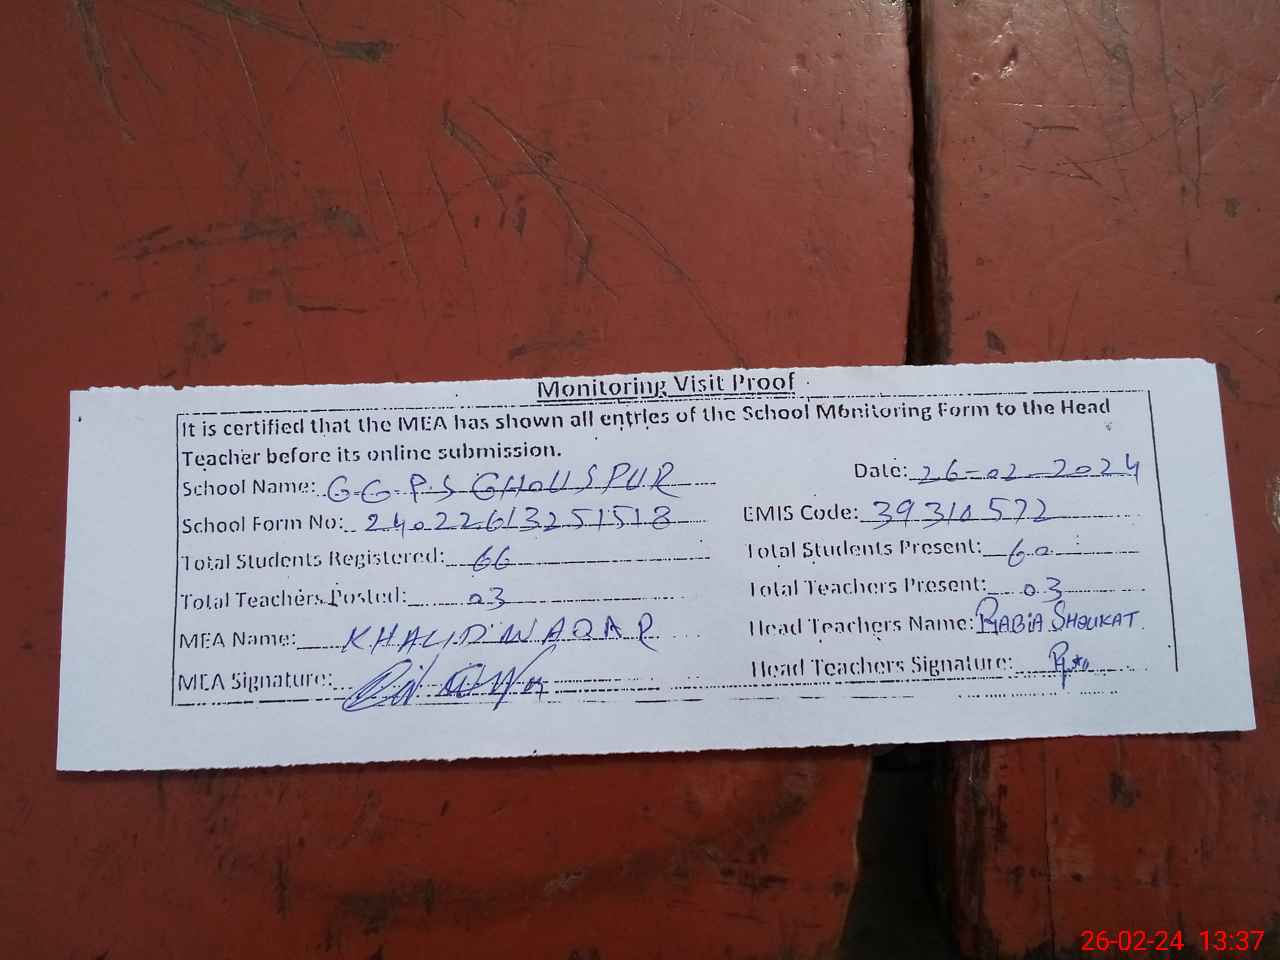 Monitoring Visit Proof
It is certified that the MEA has shown all entries of the School Monitoring Form to the Head
Teacher before its online submission.
School Name: G.G.P.S GHOUSPUR Date: 26-02-2024
School Form No: 24022613251518 EMIS Code: 39310572
Total Students Registered: 66 Total Students Present: 60
Total Teachers Posted: 03 Total Teachers Present: 03
MEA Name: KHALID WAQAR Head Teachers Name: RABIA SHOUKAT
MEA Signature: Head Teachers Signature:
26-02-24 13:37